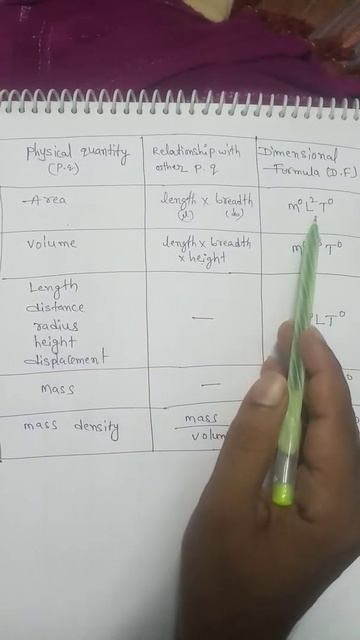 Physical quantity
(P.q)
Relationship with
other P. q
Dimensional
Formula (D.F)
Area
length x breadth
M⁰ L² T⁰
Volume
length x breadth
x height
T⁰
Length
distance
radius
height
displacement
—
LT⁰
Mass
—
mass density
mass